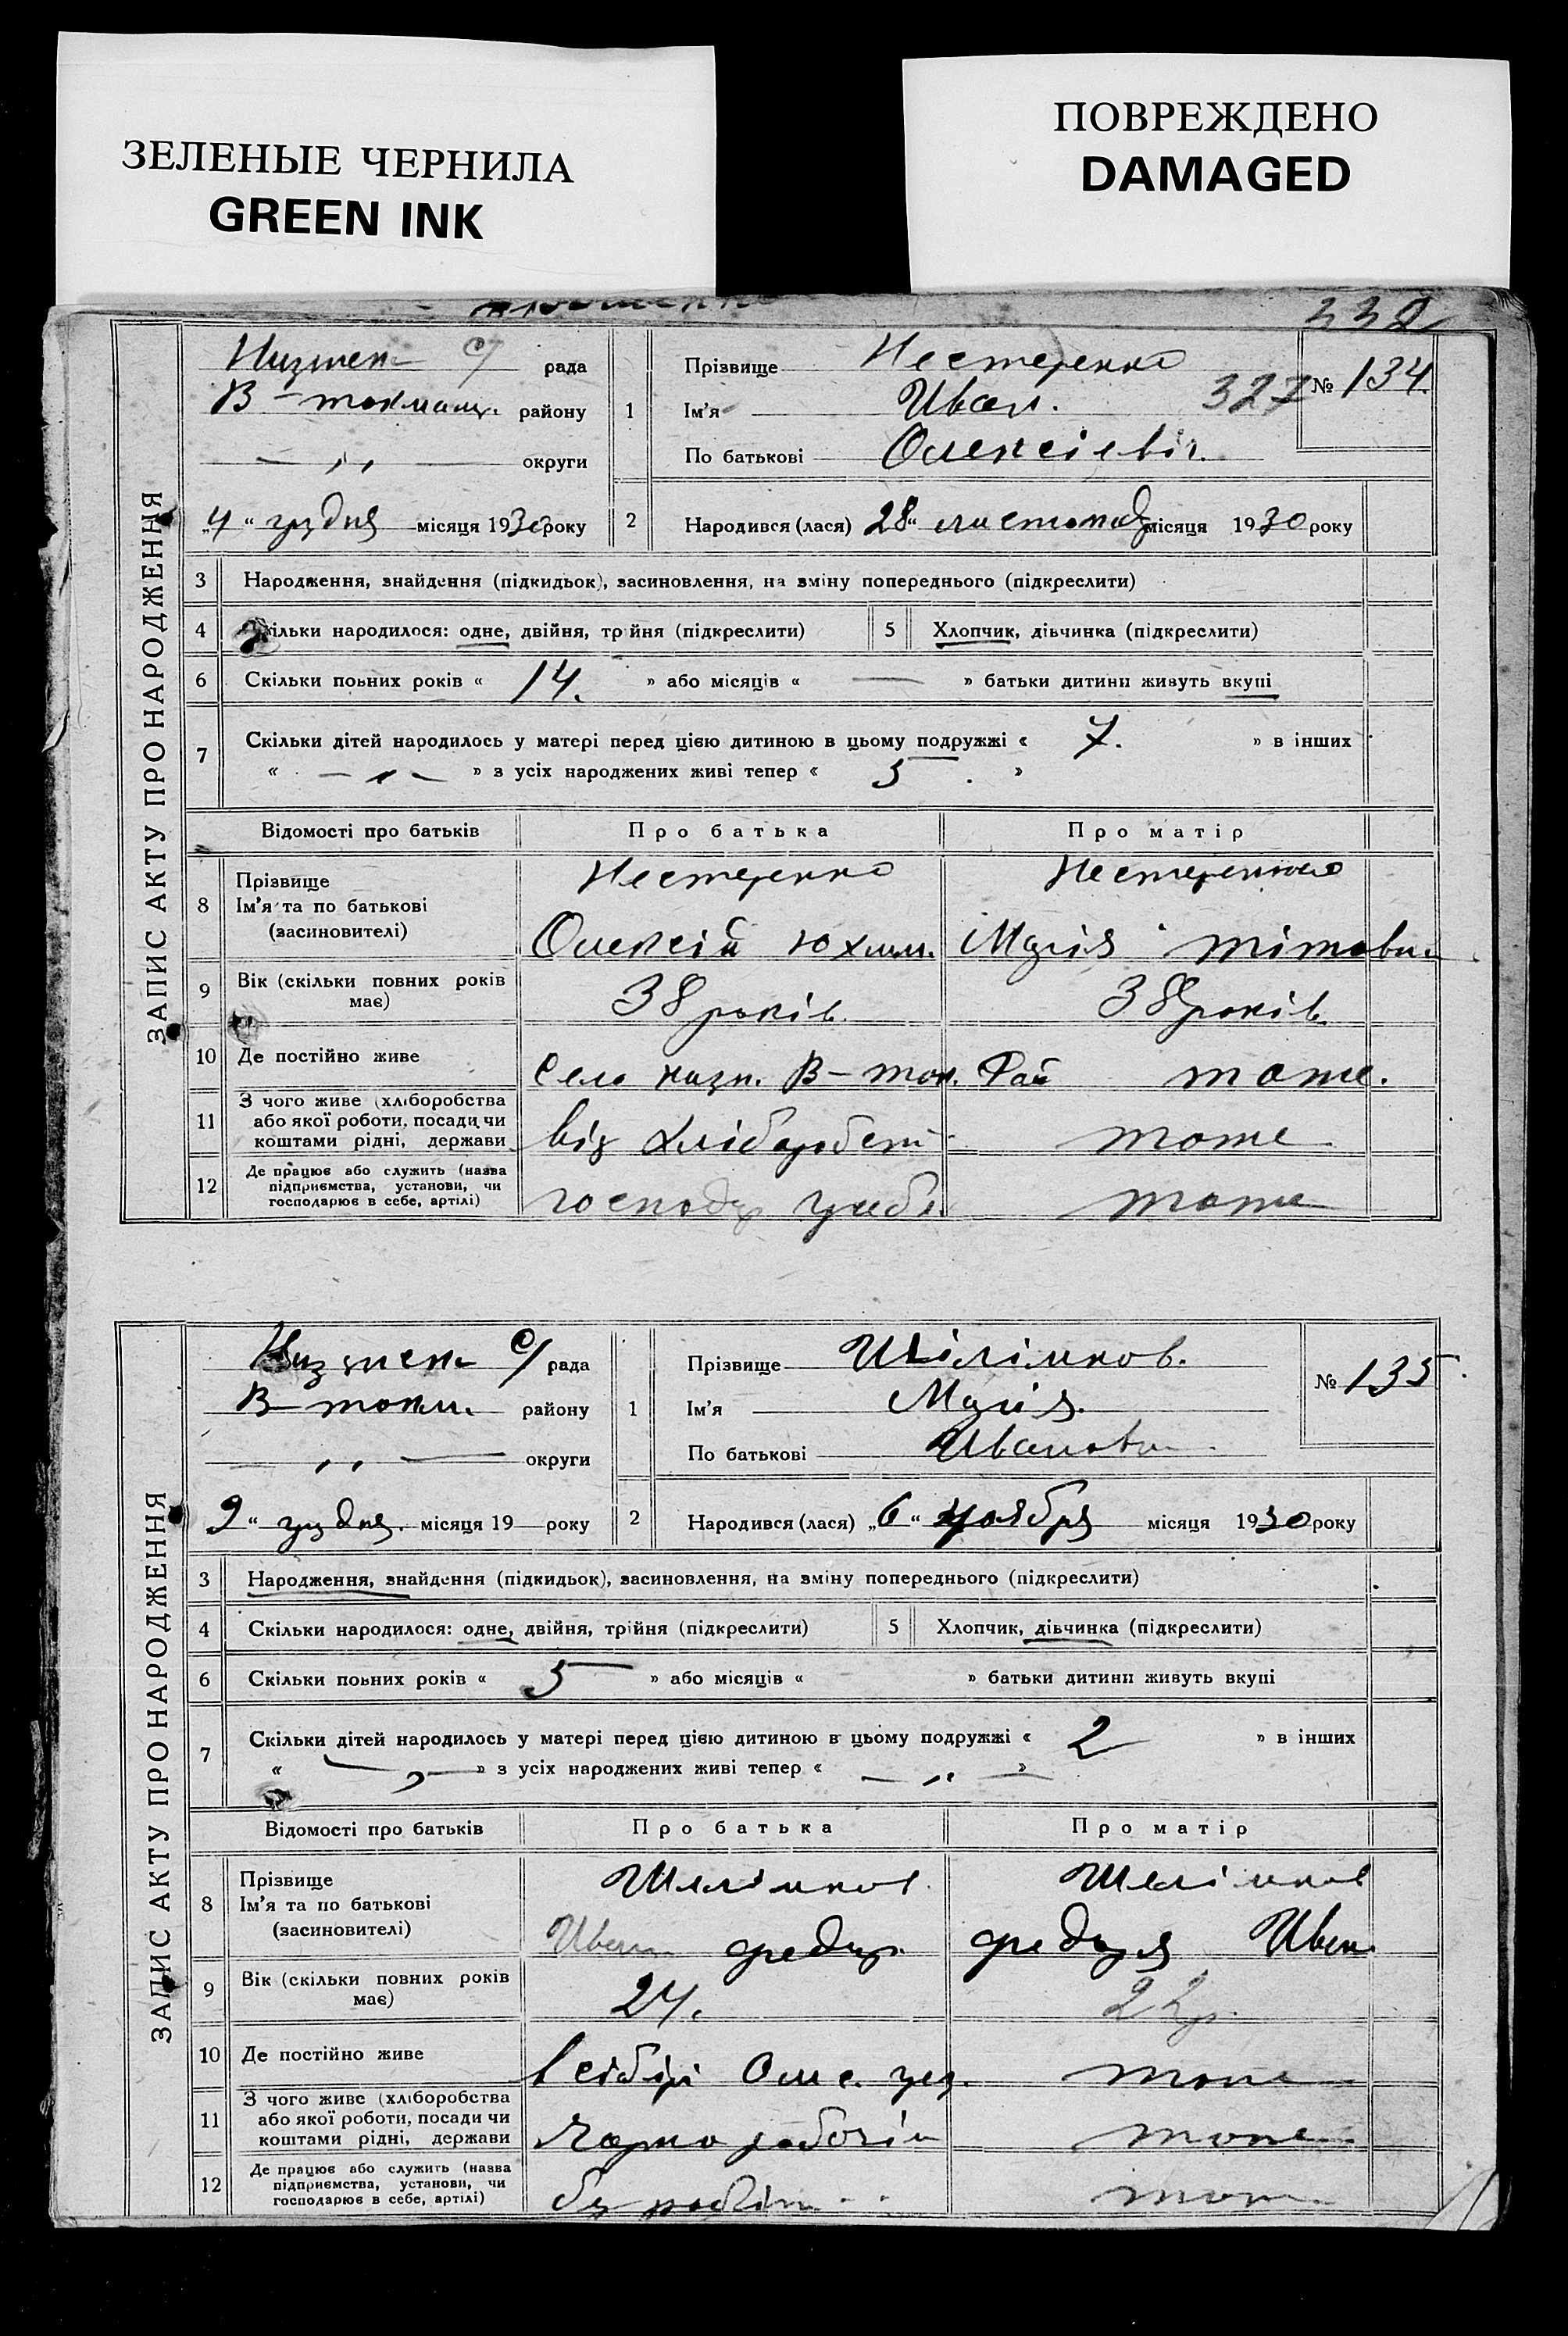 ЗЕЛЕНЫЕ ЧЕРНИЛА
GREEN INK
ПОВРЕЖДЕНО
DAMAGED
338
ЗАПИС АКТУ ПРО НАРОДЖЕННЯ
с/ рада
В – токмац. району
— „ — округи
„4“ грудня місяця 1930 року
1
Прізвище Нестеренко
Ім’я Иван.
327
По батькові Олексіевіч.
№ 134.
2
Народився (лася) 28“ листопад місяця 1930 року
3 Народження, знайдення (підкидьок), засиновлення, на зміну попереднього (підкреслити)
4 Скільки народилося: одне, двійня, трійня (підкреслити)
5 Хлопчик, дівчинка (підкреслити)
6 Скільки повних років « 14. » або місяців « — » батьки дитини живуть вкупі
7 Скільки дітей народилось у матері перед цією дитиною в цьому подружжі « 7. » в інших
« – „ – » з усіх народжених живі тепер « 5 . »
Відомості про батьків
Про батька
Про матір
8 Прізвище
Ім’я та по батькові
(засиновителі)
Нестеренко
Олексій Юхим.
Нестеренко
Марія Тітовн.
9 Вік (скільки повних років має)
38 років.
38 років.
10 Де постійно живе
Село низн. В – ток. Рай
тоже.
11 З чого живе (хліборобства
або якої роботи, посади, чи
коштами рідні, держави
від хліборобст
тоже
12 Де працює або служить (назва
підприємства, установи, чи
господарює в себе, артілі)
господ
тоже
ЗАПИС АКТУ ПРО НАРОДЖЕННЯ
с/ рада
В – токм. району
— „ — округи
9“ грудня. місяця 19 — року
1
Прізвище Шілімков.
Ім’я Марія.
По батькові Ивановн
№ 135
2
Народився (лася) „6“ ноября місяця 1930 року
3 Народження, знайдення (підкидьок), засиновлення, на зміну попереднього (підкреслити)
4 Скільки народилося: одне, двійня, трійня (підкреслити)
5 Хлопчик, дівчинка (підкреслити)
6 Скільки повних років « 5 » або місяців « » батьки дитини живуть вкупі
7 Скільки дітей народилось у матері перед цією дитиною в цьому подружжі « 2 » в інших
« — „ — » з усіх народжених живі тепер « — „ — »
Відомості про батьків
Про батька
Про матір
8 Прізвище
Ім’я та по батькові
(засиновителі)
Шилімков
Иван федор.
Шелімков
федоря Иван.
9 Вік (скільки повних років має)
24.
22 р.
10 Де постійно живе
в сібірі Омс.
тоже
11 З чого живе (хліборобства
або якої роботи, посади чи
коштами рідні, держави
Чорно робочім
тоже
12 Де працює або служить (назва
підприємства, установи, чи
господарює в себе, артілі)
тоже